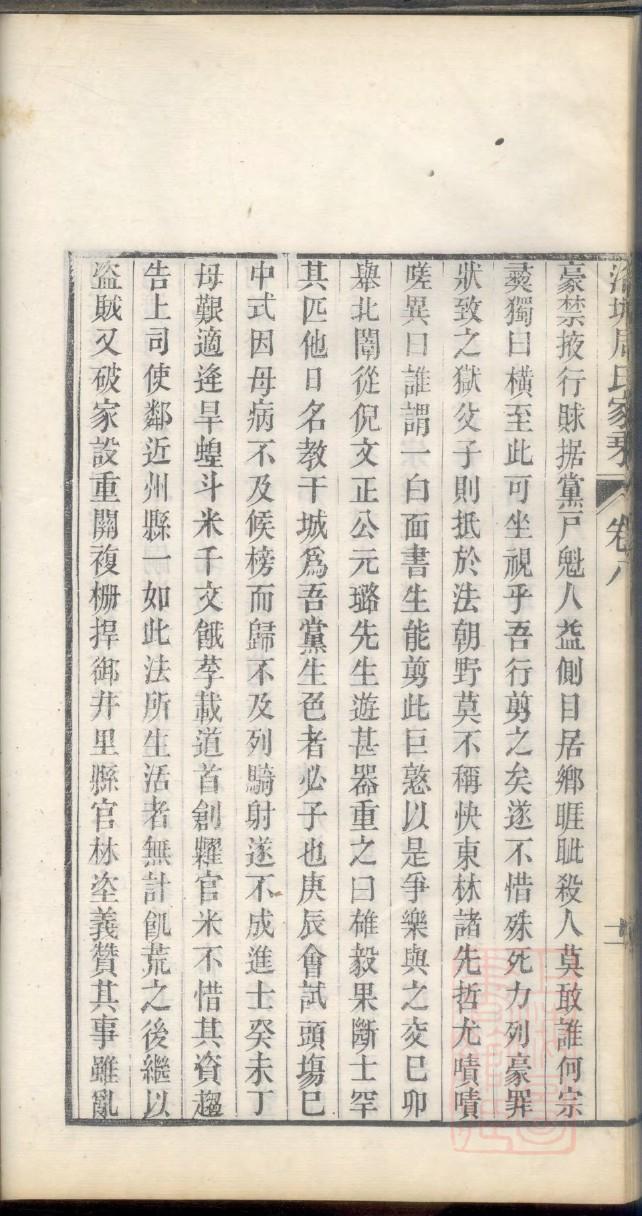 周氏家
卷八
豪禁掖行賕据黨戸魁人益側目居鄉睚眦殺人莫敢誰何宗
獨曰橫至此可坐視乎吾行剪之矣遂不惜殊死力列豪罪
狀致之獄父子則抵於法朝野莫不稱快東林諸先哲尤嘖嘖
嗟異曰誰謂一白面書生能剪此巨憝以是爭樂與之交己卯
舉北闈從倪文正公元璐先生遊甚器重之曰雄毅果斷士罕
其匹他日名教干城爲吾黨生色者必子也庚辰會試頭塲已
中式因母病不及候榜而歸不及列騎射遂不成進士癸未丁
母艱適逢旱蝗斗米千文餓莩載道首創糶官米不惜其資趨
告上司使鄰近州縣一如此法所生活者無計飢荒之後繼以
盜賊又破家設重關複柵捍御井里縣官林垐義贊其事雖亂